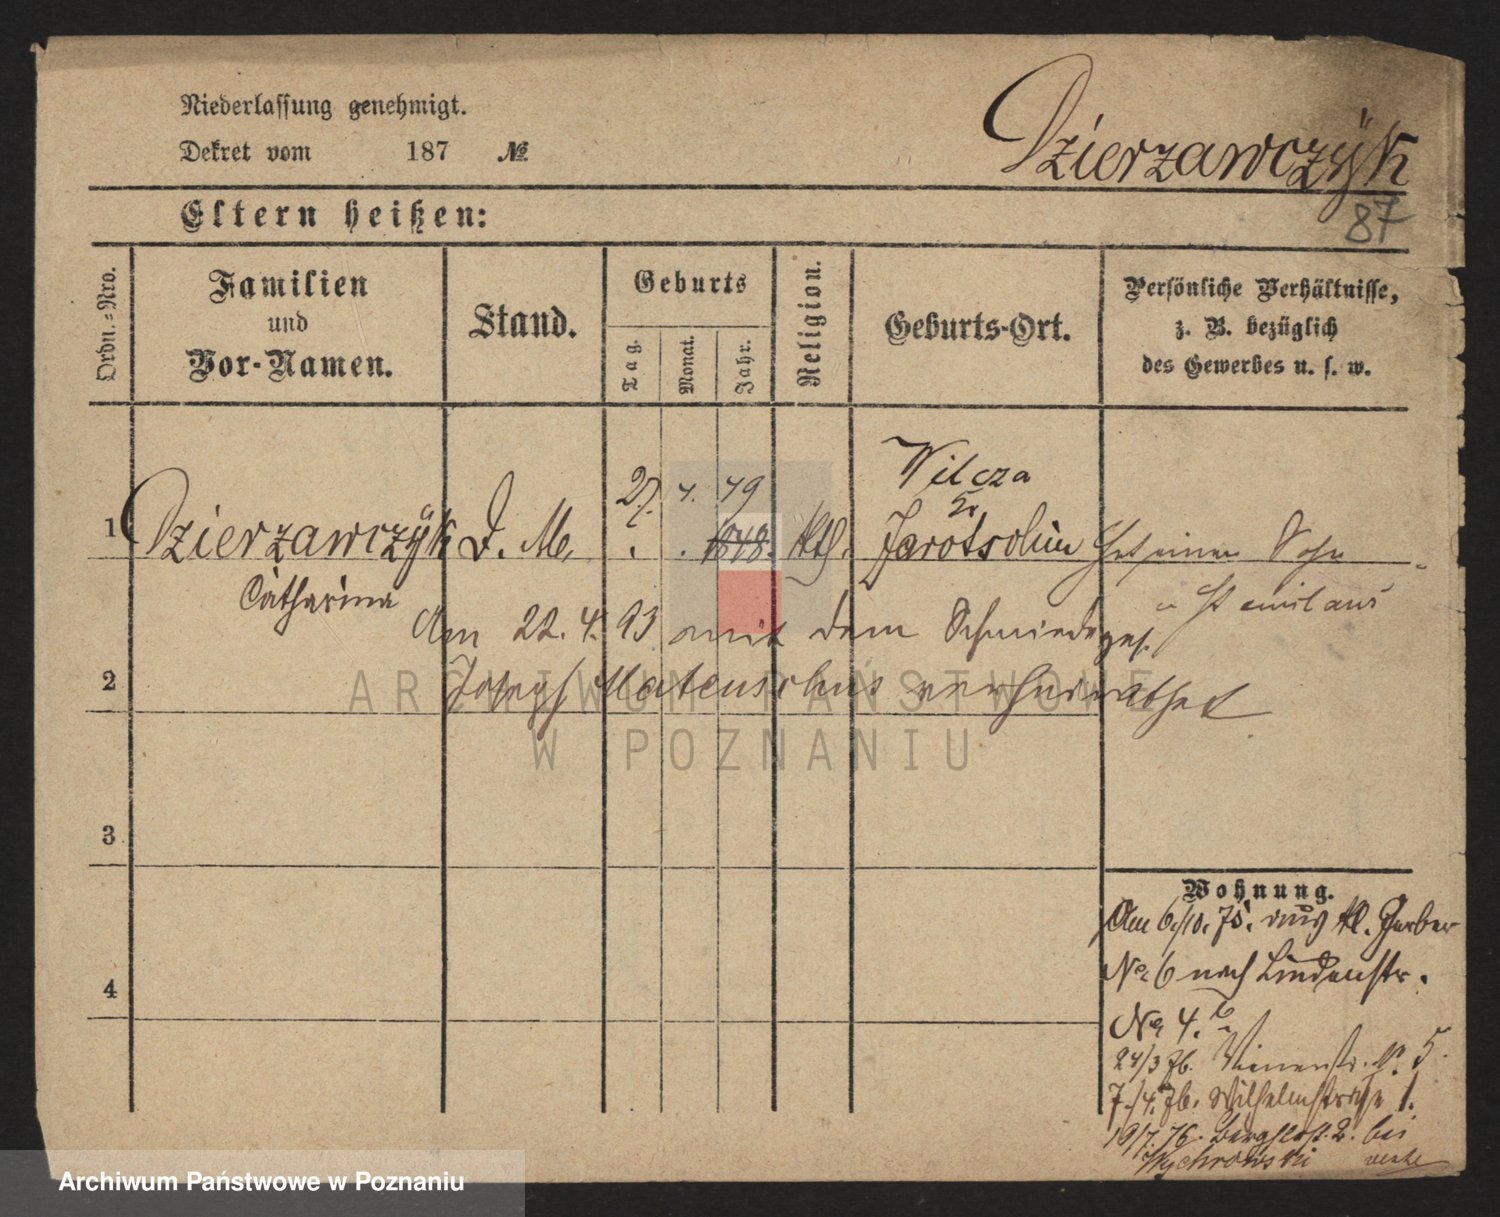 Niederlassung genehmigt.
Dekret vom 187 №
Dzierzawczÿk
87
Eltern heißen:
Ordn.=Nro.
Familien
und
Vor-Namen.
Stand.
Geburts
Tag.
Monat.
Jahr.
Religion.
Geburts-Ort.
Persönliche Verhältnisse,
z. B. bezüglich
des Gewerbes u. s. w.
Wilcza
27. 4. 49
Kr.
1 Dzierzawczÿk D. M. 1848. kth. Jarotschin Hat einen Sohn
Catharina
Am 22. 4. 93 mit dem Schmiedeges.
2 Joseph verheirathet
3
4
Wohnung.
Am 6/10. 75. aus kl. Gerber
No 6 nach Lindenstr.
No 4.
24/3 76. Wienerstr. No 5.
7./4. 76. Wilhelmstraße 1.
19/7. 76. Bergstr. 2. bei
Wychrowski
ARCHIWUM PAŃSTWOWE
W POZNANIU
Archiwum Państwowe w Poznaniu